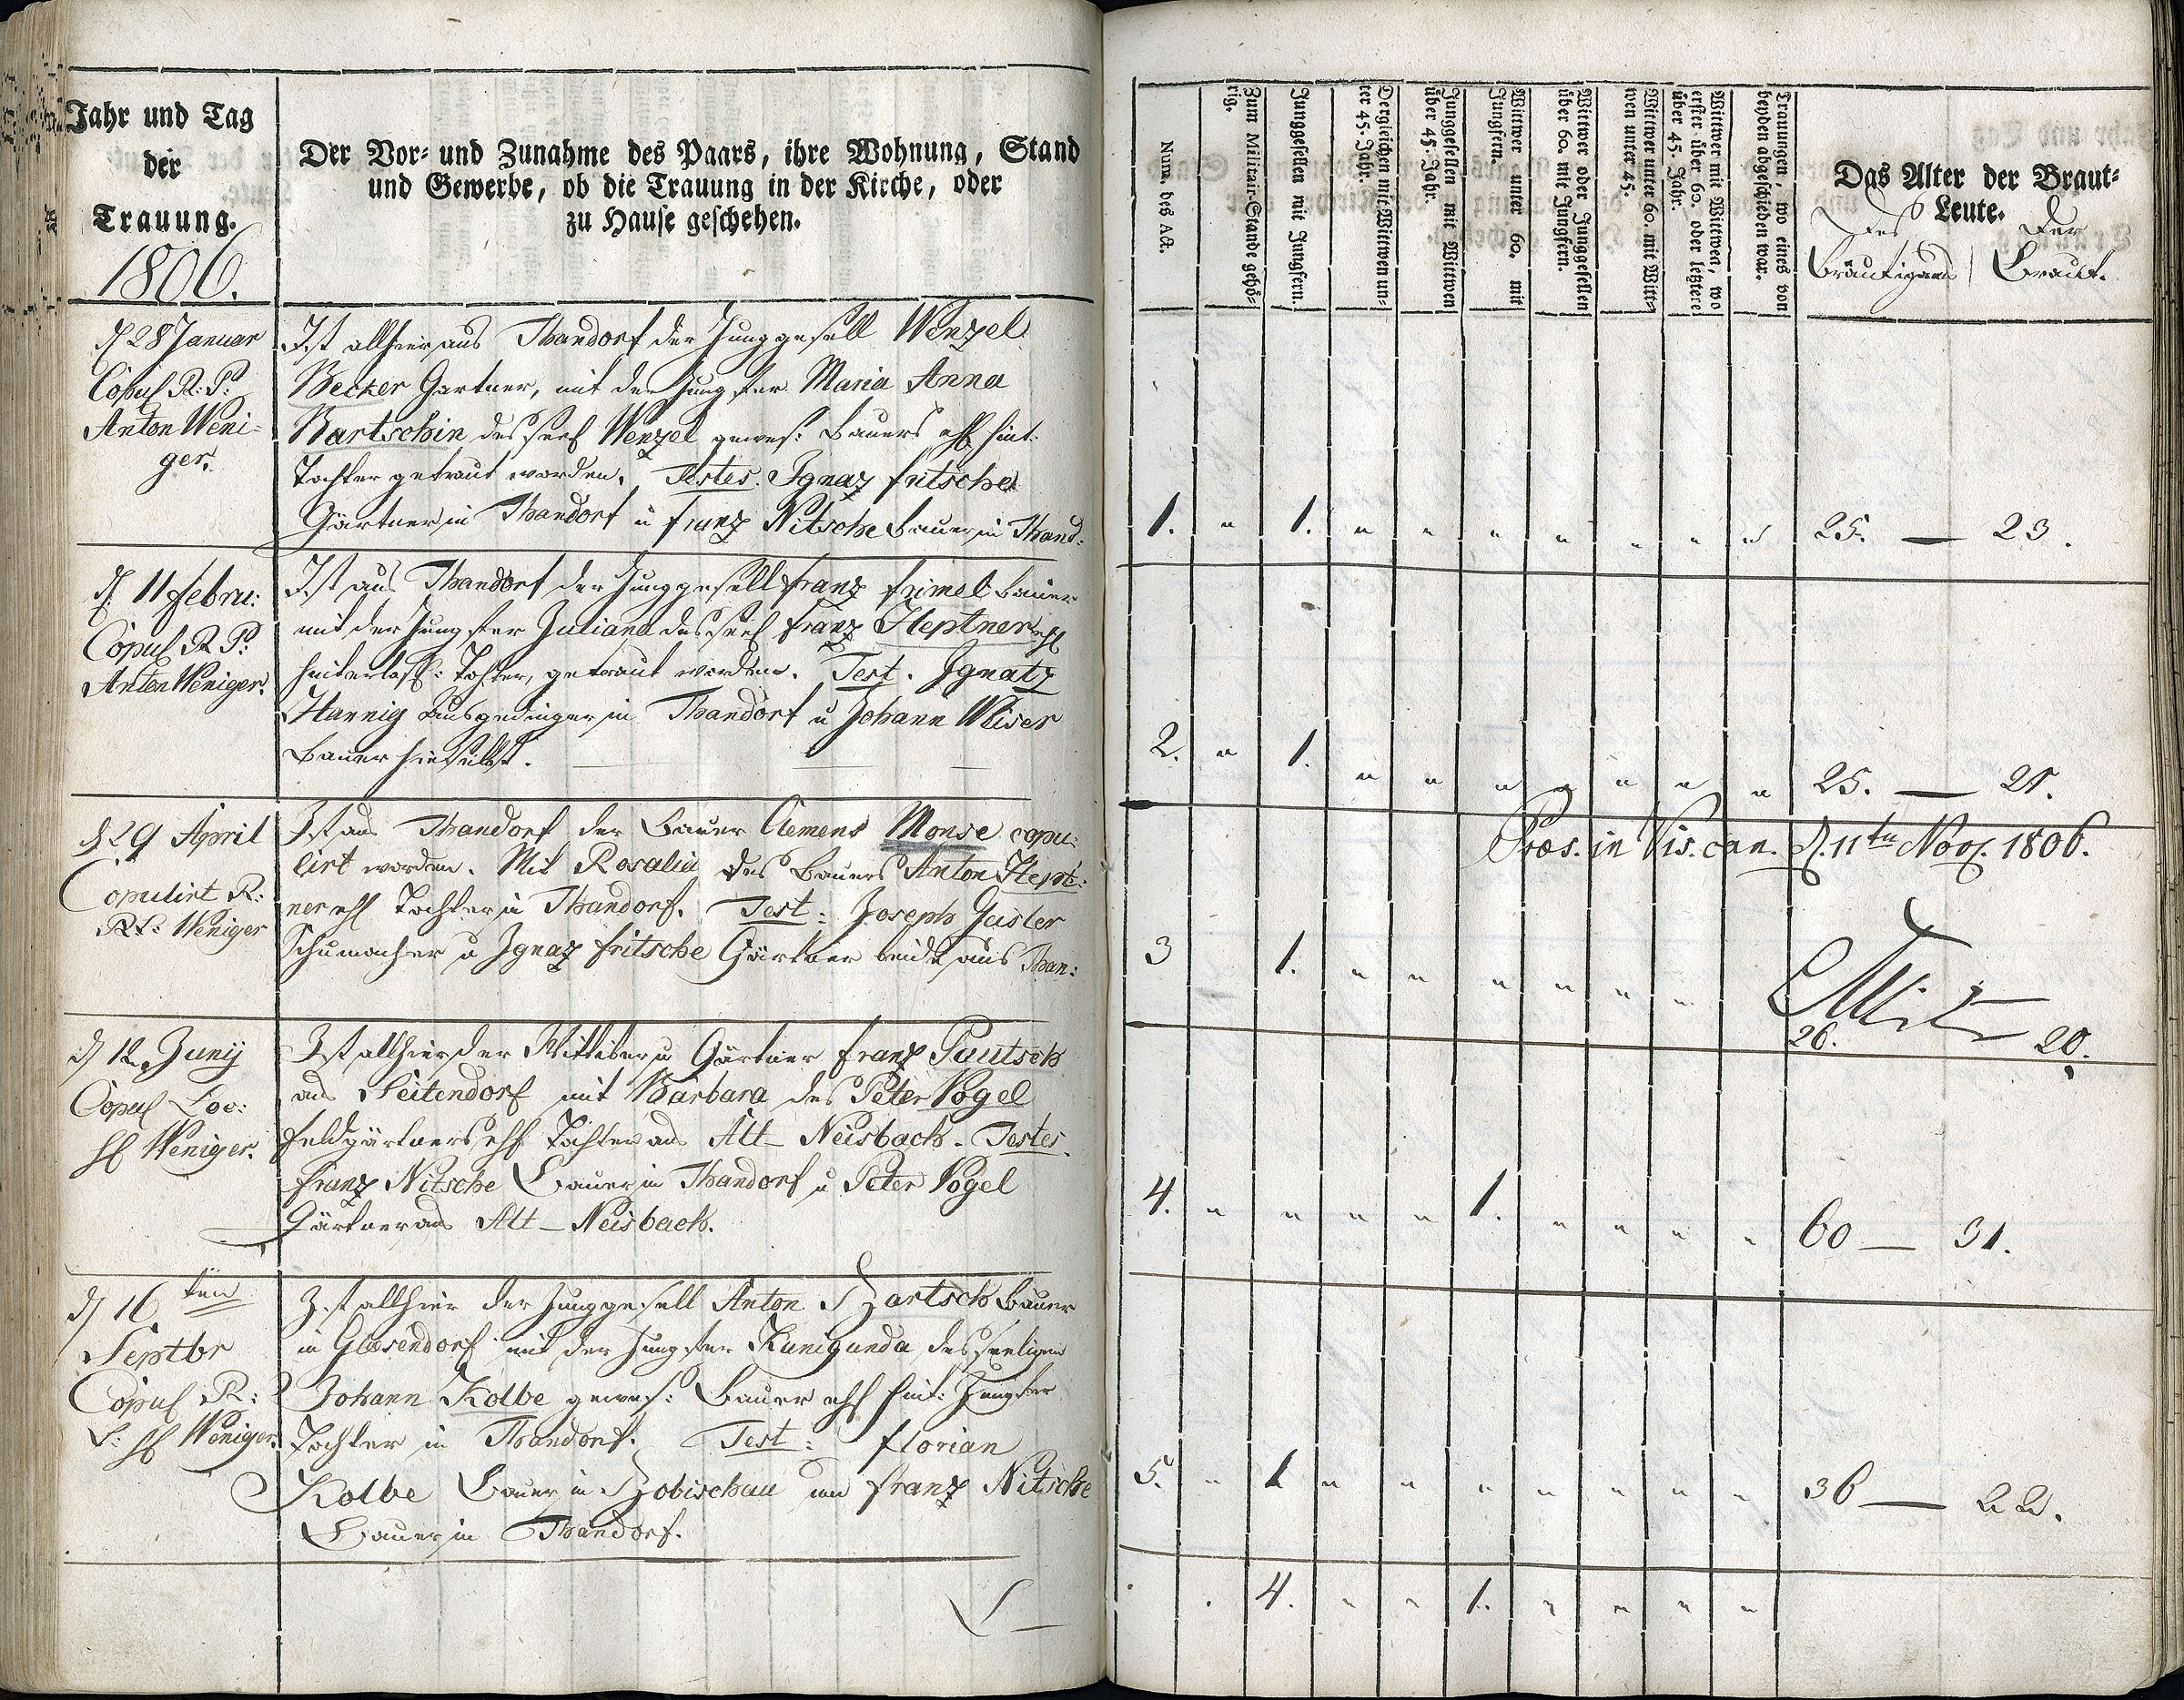 Jahr und Tag
der
Trauung.
1806.
Der Vor- und Zunahme des Paars, ihre Wohnung, Stand
und Gewerbe, ob die Trauung in der Kirche, oder
zu Hause geschehen.
d 28 Januar
Copul R: P:
Anton Weni-
ger.
Ist allhier aus Thandorf der Junggesell Wenzel
Becker Gartner, mit der Jungfer Maria Anna
Bartschin des seel Wenzel gewes: Bauers ehl hint:
Tochter getraut worden. Testes. Ignaz fritsche
Gärtner in Thandorf u franz Nitsche Bauer in Thand:
d. 11 febru:
Copul R P:
Anton Weniger.
Ist aus Thandorf der Junggesell franz frimel Bauer
mit der Jungfer Juliana des seel franz Heptner ehl
hinterlass: Tochter, getraut worden. Test. Ignatz
Hannig Ausgedinger in Thandorf u Johann Weiser
Bauer hieselbst.
d 29 April
Copulirt R:
Weniger
Ist aus Thandorf der Bauer Clemens Monse copu:
lirt worden. Mit Rosalia des Bauers Anton Hept:
ner ehl Tochter in Thandorf. Test: Joseph Geisler
Schumacher u Ignaz fritsche Gärtner beide aus Than:
d 12 Junij
Copul Loc:
Weniger.
Ist allhier der Wittiber u Gärtner franz Pautsch
aus Seitendorf mit Barbara des Peter Vogel
feldgärtners ehl Tochter aus Alt-Neisbach. Testes.
franz Nitsche Bauer in Thandorf u Peter Vogel
Gärtner aus Alt-Neisbach.
d 16ten
Septbr
Copul R:
Weniger.
Ist allhier der Junggesell Anton Bartsch Bauer
in Glasendorf mit der Jungfer Kunigunda des seeligen
Johann Kolbe gewes: Bauer ehl hint: Jungfer
Tochter in Thandorf. Test: florian
Kolbe Bauer in Zobischau un franz Nitsche
Bauer in Thandorf.
Num. des Act.
Zum Militair-Stande gehö-
rig.
Junggesellen mit Jungfern.
Dergleichen mit Wittwen un-
ter 45. Jahr.
Junggesellen mit Wittwen
über 45. Jahr.
Wittwer unter 60. mit
Jungfern.
Wittwer oder Junggesellen
über 60. mit Jungfern.
Wittwer unter 60. mit Witt-
wen unter 45.
Wittwer mit Wittwen, wo
erster über 60. oder letztere
über 45. Jahr.
Trauungen, wo eines von
beyden abgeschieden war.
Das Alter der Braut-
Leute.
des der
Bräutigams Braut.
1. " 1. " " " " " " " 25. — 23.
2. " 1. " " " " " " " 25. — 21.
Praes. in Vis. can. d. 11ten Nov. 1806.
3 1. " " " " " " 26. 20.
4. " " " " 1. " " " " 60 — 31.
5. " 1 " " " " " " " 36 — 22.
4. " " 1. " " " "